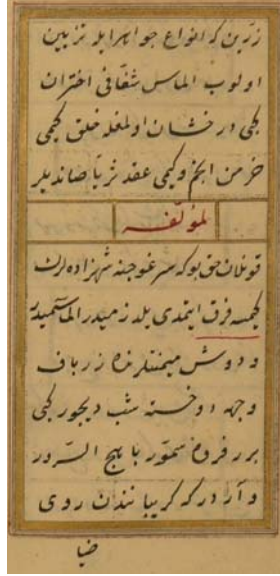 زرین که انواع جواهر ایله تزیین
اولوب الماس شفافی اختران
کبی درخشان اولمغله خلق کیمی
خرمن انجم وکیمی عقد ثریا صاندیلر
لمؤلفه
قونلان حق بوکه سرغوجنه شهزاده لرك
کیمسه فرق ایتمدی یلدزمیدر الماسمیدر
ودوش میمنتلرنده زرباف
وجهه دوخته شب دیجور کبی
بر فروه سمور باهیج السرور
وار درکه کریبانندن روی
ضیا